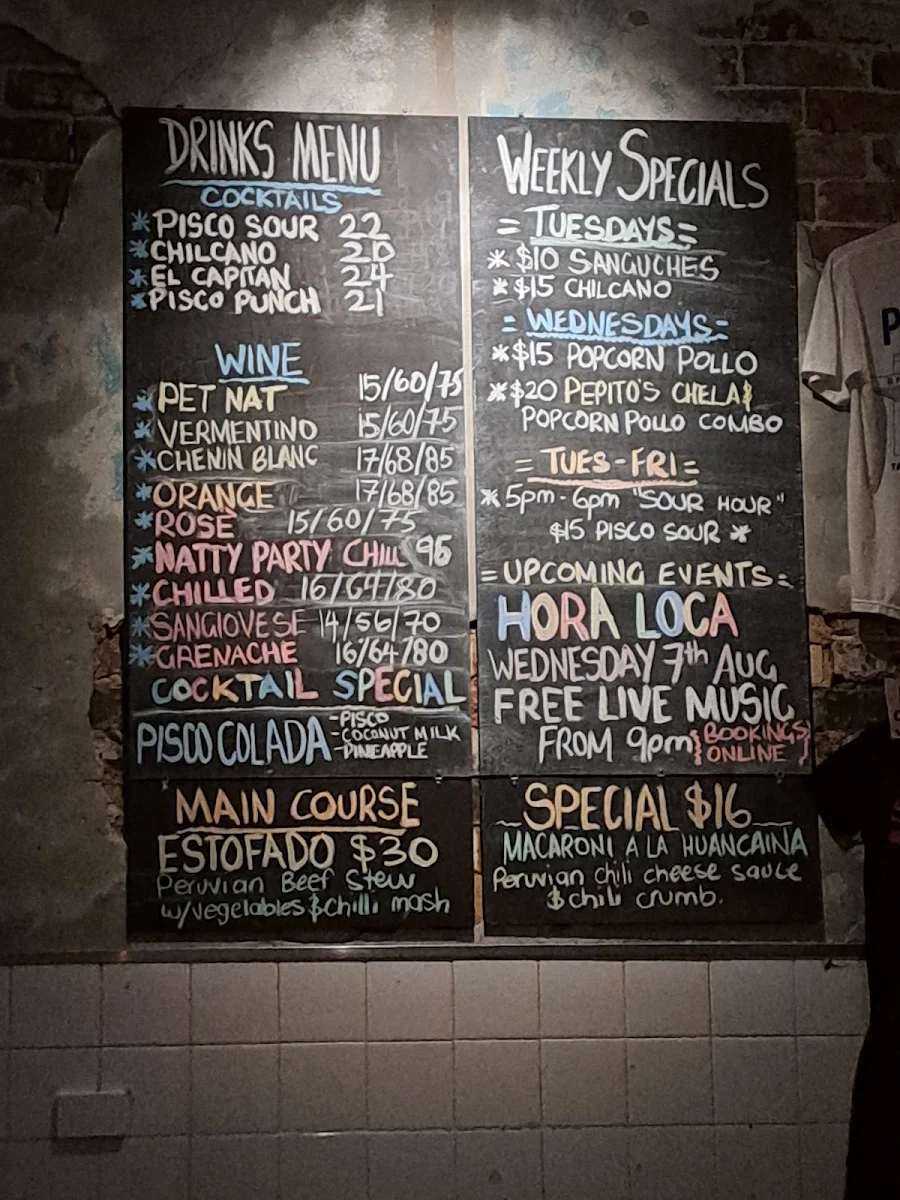 DRINKS MENU
COCKTAILS
* PISCO SOUR 22
* CHILCANO 20
* EL CAPITAN 24
* PISCO PUNCH 21
WINE
* PET NAT 15/60/75
* VERMENTINO 15/60/75
* CHENIN BLANC 17/68/85
* ORANGE 17/68/85
* ROSÈ 15/60/75
* NATTY PARTY CHILL 96
* CHILLED 16/64/80
* SANGIOVESE 14/56/70
* GRENACHE 16/64/80
COCKTAIL SPECIAL
PISCO COLADA
-PISCO
-COCONUT MILK
-PINEAPPLE
MAIN COURSE
ESTOFADO $30
Peruvian Beef Stew
w/vegetables & chilli mash
WEEKLY SPECIALS
= TUESDAYS =
* $10 SANGUCHES
* $15 CHILCANO
= WEDNESDAYS =
* $15 POPCORN POLLO
* $20 PEPITO'S CHELA &
POPCORN POLLO COMBO
= TUES-FRI =
* 5pm-6pm "SOUR HOUR"
$15 PISCO SOUR *
= UPCOMING EVENTS =
HORA LOCA
WEDNESDAY 7th AUG
FREE LIVE MUSIC
FROM 9pm {BOOKINGS
ONLINE}
SPECIAL $16
MACARONI A LA HUANCAINA
Peruvian chili cheese sauce
& chili crumb.